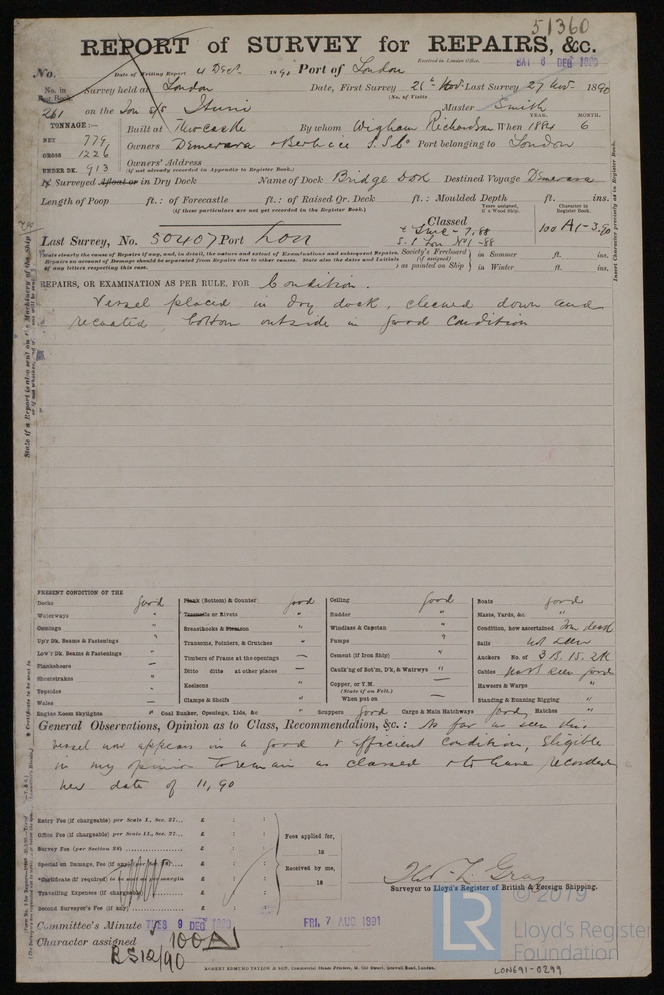 51360
REPORT of SURVEY for REPAIRS, &c.
Received in London Office.
SAT 6 DEC 1890
No.
Date of Writing Report 4 Dec 1890 Port of London
No. in Reg. Book.
Survey held at London Date, First Survey 26th Nov. Last Survey 27 Nov. 1890
(No. of Visits
261 on the Iron s/s Ituni Master Smith
TONNAGE:—
YEAR. MONTH.
NET 779
Built at Newcastle By whom Wigham Richardson When 1884 6
GROSS 1226
Owners Demerara & Berbice S.S.Co Port belonging to London
UNDER DK. 913
Owners' Address
(if not already recorded in Appendix to Register Book.)
If Surveyed Afloat or in Dry Dock Name of Dock Bridge Dok Destined Voyage Demerara
Length of Poop ft.: of Forecastle ft.: of Raised Qr. Deck ft.: Moulded Depth ft. ins.
(if these particulars are not yet recorded in the Register Book.)
Years assigned, if a Wood Ship.
Character in Register Book.
Classed
100 A1-3.90
Last Survey, No. 50407 Port Lon
S.S Lon No1-88
State clearly the cause of Repairs of any, and, in detail, the nature and extent of Examinations and subsequent Repairs.
Repairs on account of Damage should be separated from Repairs due to other causes. State also the dates and Initials
of any letters respecting this case.
Society's Freeboard (if assigned) as painted on Ship
in Summer ft. ins.
in Winter ft. ins.
REPAIRS, OR EXAMINATION AS PER RULE, FOR Condition.
Vessel placed in dry dock, cleaned down and
recoated, bottom outside in good condition
PRESENT CONDITION OF THE
Decks good
Waterways "
Comings "
Up'r Dk. Beams & Fastenings "
Low'r Dk. Beams & Fastenings "
Planksheers —
Sheerstrakes "
Topsides "
Wales —
Engine Room Skylights "
Plank (Bottom) & Counter
Treenails or Rivets good
Breasthooks & Stemson "
Transoms, Pointers, & Crutches "
Timbers of Frame at the openings —
Ditto ditto at other places —
Keelsons "
Clamps & Shelfs "
Coal Bunker, Openings, Lids, &c "
Ceiling good
Rudder "
Windlass & Capstan "
Pumps "
Cement (if Iron Ship) "
Caulk'ng of Bot'm, D'k, & Watrwys "
Copper, or Y.M. —
(State if on Felt.)
When put on —
Scuppers good Cargo & Main Hatchways good Hatches "
Boats good
Masts, Yards, &c. "
Condition, how ascertained From deck
Sails not seen
Anchors No. of 3 B. 1S. 2K
Cables part seen good
Hawsers & Warps "
Standing & Running Rigging "
General Observations, Opinion as to Class, Recommendation, &c.: As far as seen this
vessel now appears in a good & efficient condition, Eligible
in my opinion to remain as classed & to have recorded
new date of 11,90
Entry Fee (if chargeable) per Scale I., Sec. 27... £ : :
Office Fee (if chargeable) per Scale II., Sec. 27... £ : :
Survey Fee (per Section 28) £ : :
Special or Damage, Fee (if any) £ : :
Certificate (if required) to be sent as per margin £ : :
Travelling Expenses (if chargeable) £ : :
Second Surveyor's Fee (if any) £ : :
Fees applied for,
18
Received by me,
18
Thos. L. Gray
Surveyor to Lloyd's Register of British & Foreign Shipping.
Committee's Minute TUES 9 DEC 1890
FRI. 7 AUG 1891
Character assigned 100A1
RS12/90
ROBERT EDMUND TAYLOR & SON, Commercial Steam Printers, 19, Old Street, Goswell Road, London.
© 2019
LR
Lloyd's Register
Foundation
LON691-0299
Insert Character precisely as in Register Book.